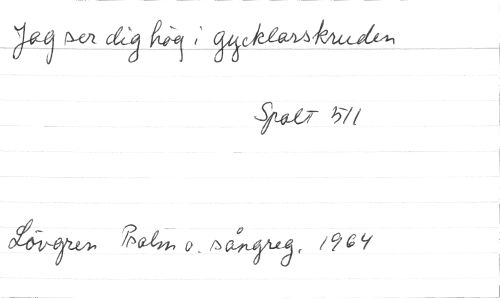 Jag ser dig hög i gycklarskruden
Spalt 511
Lövgren Psalm o. sångreg. 1964